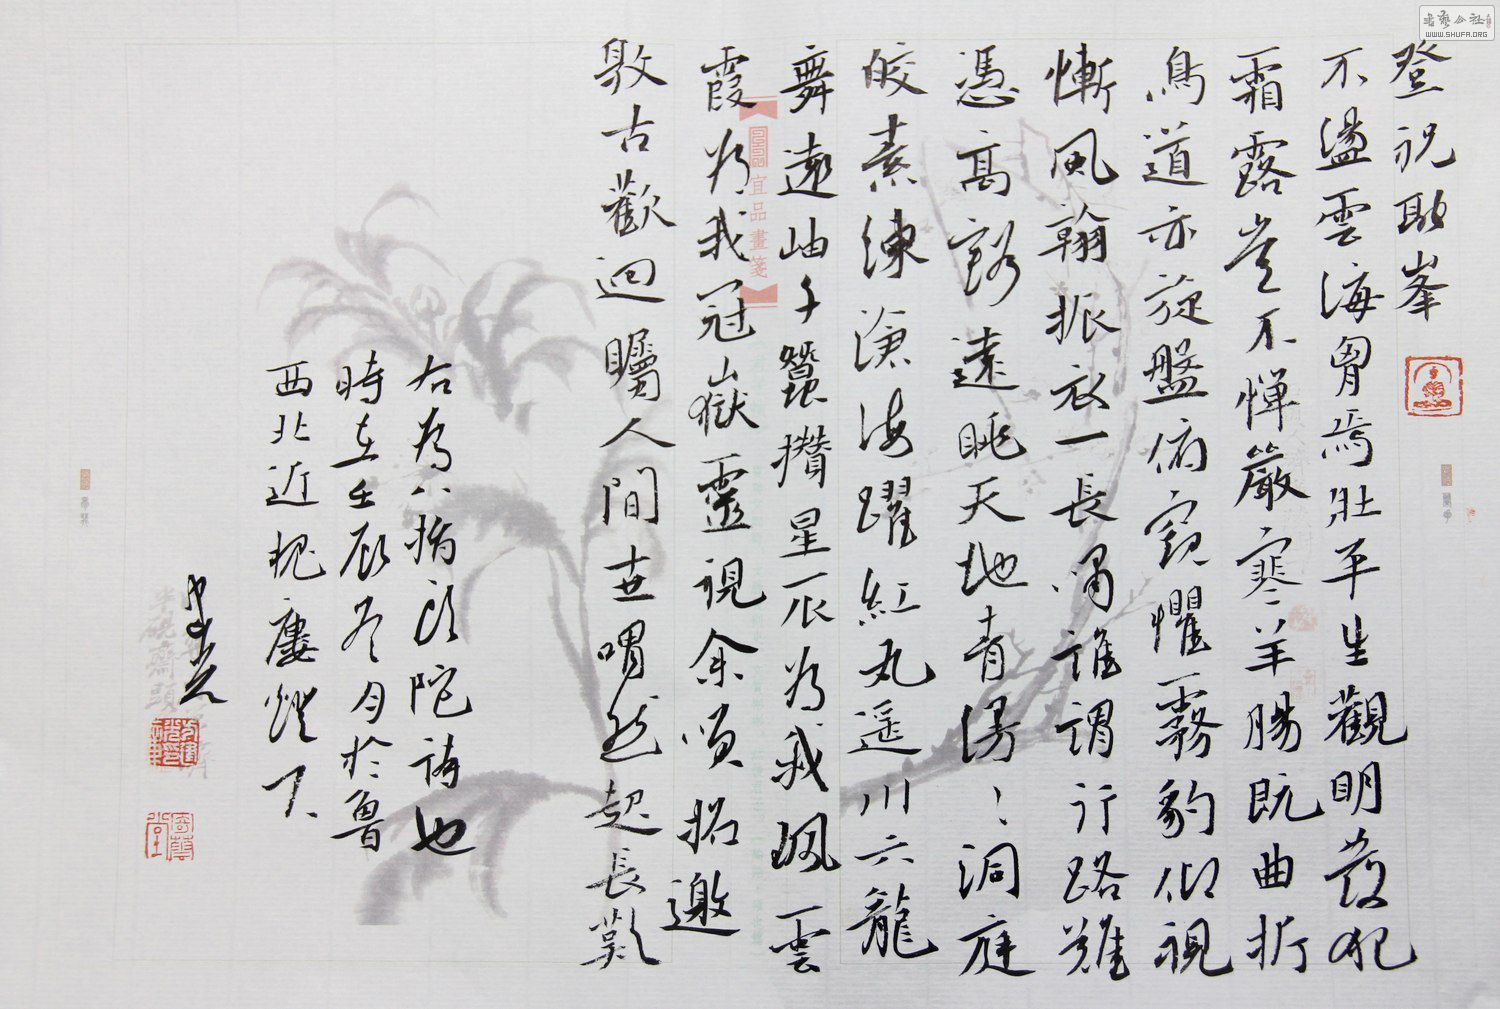 登祝融峯
不盪雲海胷焉壯平生觀明發犯
霜露豈不憚嚴寒羊腸既曲折
鳥道亦旋盤俯窺懼霧豹仰視
慚風翰振衣一長嘯誰謂行路難
憑高豁遠眺天地青漫漫洞庭
皎素練滄海躍紅丸遥川六龍
舞遠岫千蠶攢星辰為我珮雲
霞為我冠嶽靈視余笑招邀
敦古歡迴矚人間世喟然起長歎
右為八指頭陀詩也
時在壬辰冬月於魯
西北近槐廔燈下
宜品畫箋
書藝公社
WWW.SHUFA.ORG